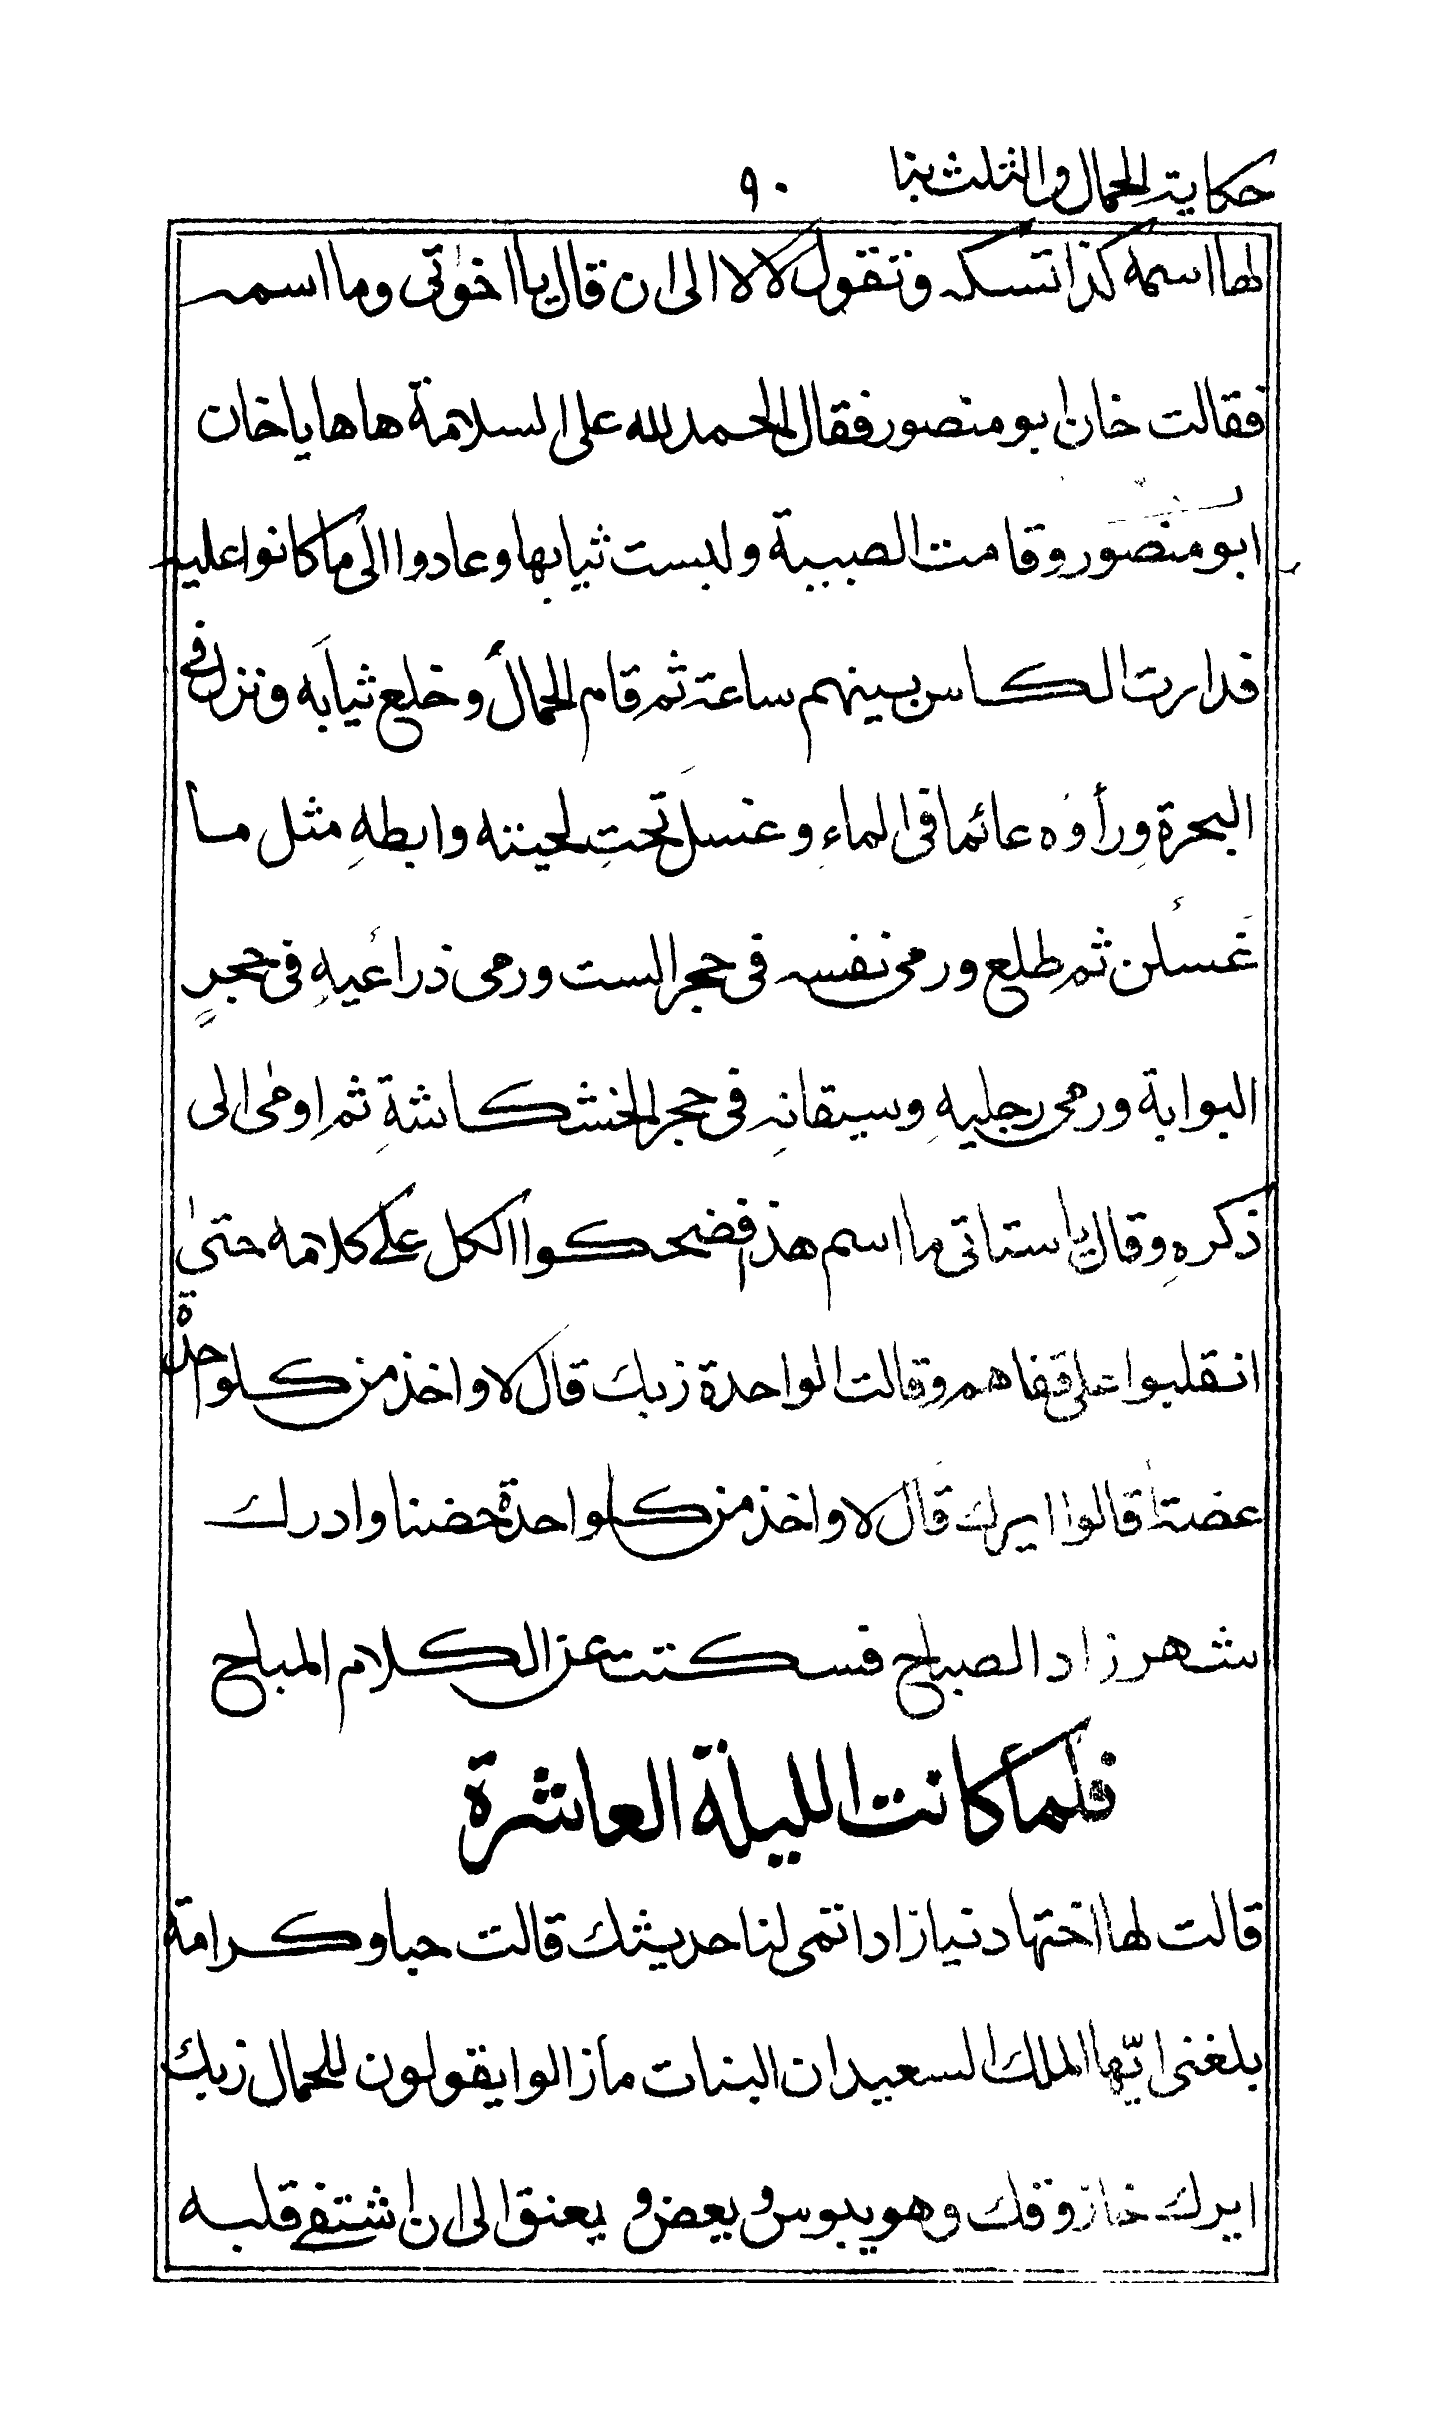 حكاية الحمال والثلث بنا ٩٠
لها اسمه كذا تسكه وتقول لا لا لا الى ان قال يا اخوتي وما اسمه
فقالت خان ابو منصور فقال الحمد لله على السلامة ها ها يا خان
ابو منصور وقامت الصبية ولبست ثيابها وعادوا الى ما كانوا عليه
فدارت الكاس بينهم ساعة ثم قام الحمال وخلع ثيابه ونزل في
البحرة ورأوه عائما في الماء وغسل تحت لحيته وابطه مثل ما
غسلن ثم طلع ورمى نفسه في حجر الست ورمى ذراعيه في حجر
البوابة ورمى رجليه وسيقانه في حجر الخشكاشة ثم اومى الى
ذكره وقال يا ستاتي ما اسم هذا فضحكوا الكل على كلامه حتى
انقلبوا على قفاهم وقالت الواحدة زبك قال لا واخذ من كل واحدة
عضة قالوا ايرك قال لا واخذ من كل واحدة حضنا وادرك
شهرزاد الصباح فسكتت عن الكلام المباح
فلما كانت الليلة العاشرة
قالت لها اختها دنيازاد اتمي لنا حديثك قالت حبا وكرامة
بلغني ايّها الملك السعيد ان البنات ما زالوا يقولون للحمال زبك
ايرك خازوقك وهو يبوس ويعض و يعنق الى ان اشتفى قلبه